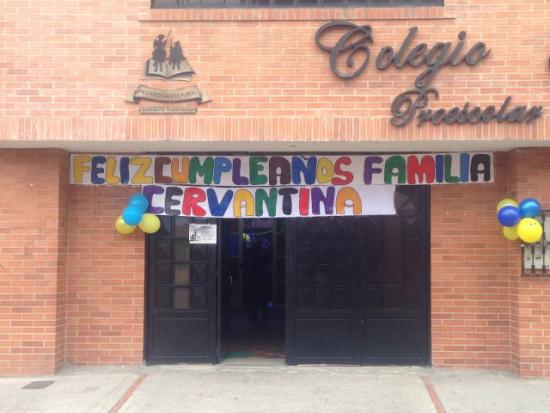 Colegio
Preescolar
FELIZ CUMPLEAÑOS FAMILIA
CERVANTINA